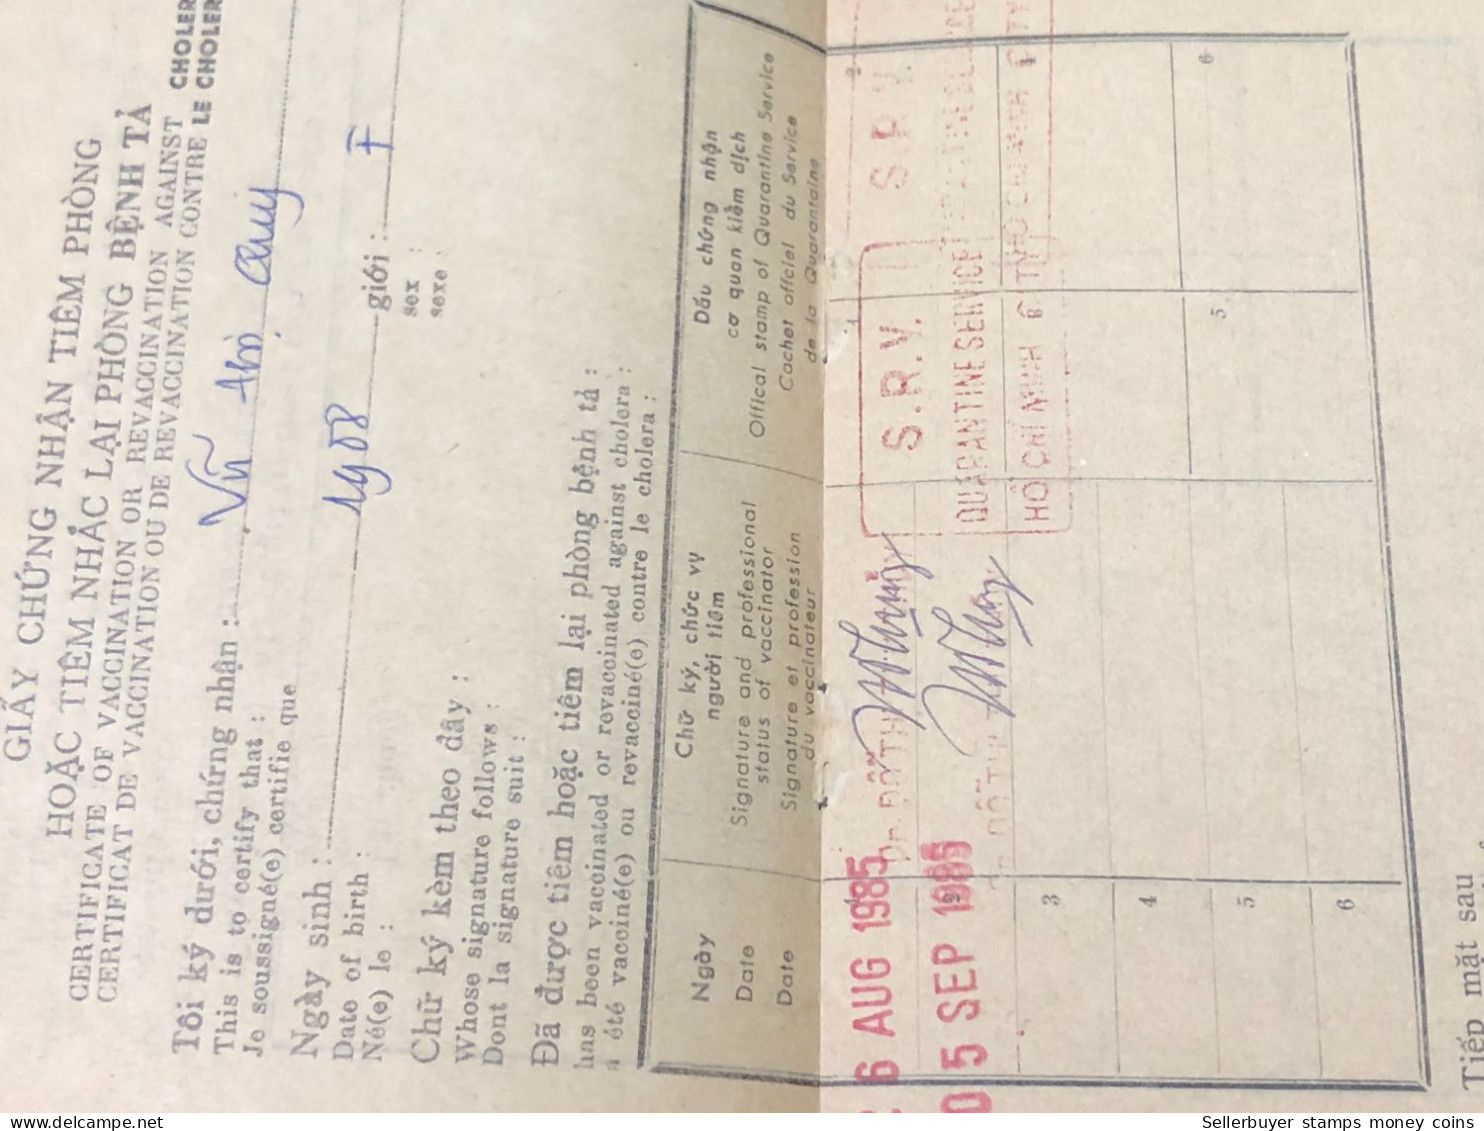 GIẤY CHỨNG NHẬN TIÊM PHÒNG
HOẶC TIÊM NHẮC LẠI PHÒNG BỆNH TẢ
CERTIFICATE OF VACCINATION OR REVACCINATION AGAINST CHOLER
CERTIFICAT DE VACCINATION OU DE REVACCINATION CONTRE LE CHOLER
Tôi ký dưới, chứng nhận : Vũ
This is to certify that :
Je soussigné(e) certifie que
Ngày sinh : 1958 giới : F
Date of birth : sex :
Né(e) le : sexe :
Chữ ký kèm theo đây :
Whose signature follows :
Dont la signature suit :
Đã được tiêm hoặc tiêm lại phòng bệnh tả :
has been vaccinated or revaccinated against cholera :
a été vacciné(e) ou revacciné(e) contre le cholera :
Ngày
Date
Date
Chữ ký, chức vụ
người tiêm
Signature and professional
status of vaccinator
Signature et profession
du vaccinateur
Dấu chứng nhận
cơ quan kiểm dịch
Offical stamp of Quarantine Service
Cachet officiel du Service
de la Quarantaine
6 AUG 1985
0 5 SEP 1985
Dr. ĐỖ THỊ
S.R.V.
QUARANTINE SERVICE
HỒ CHÍ MINH CITY
S.R.V.
3
4
5
6
5
6
Tiếp mặt sau
Sellerbuyer stamps money coins
www.delcampe.net